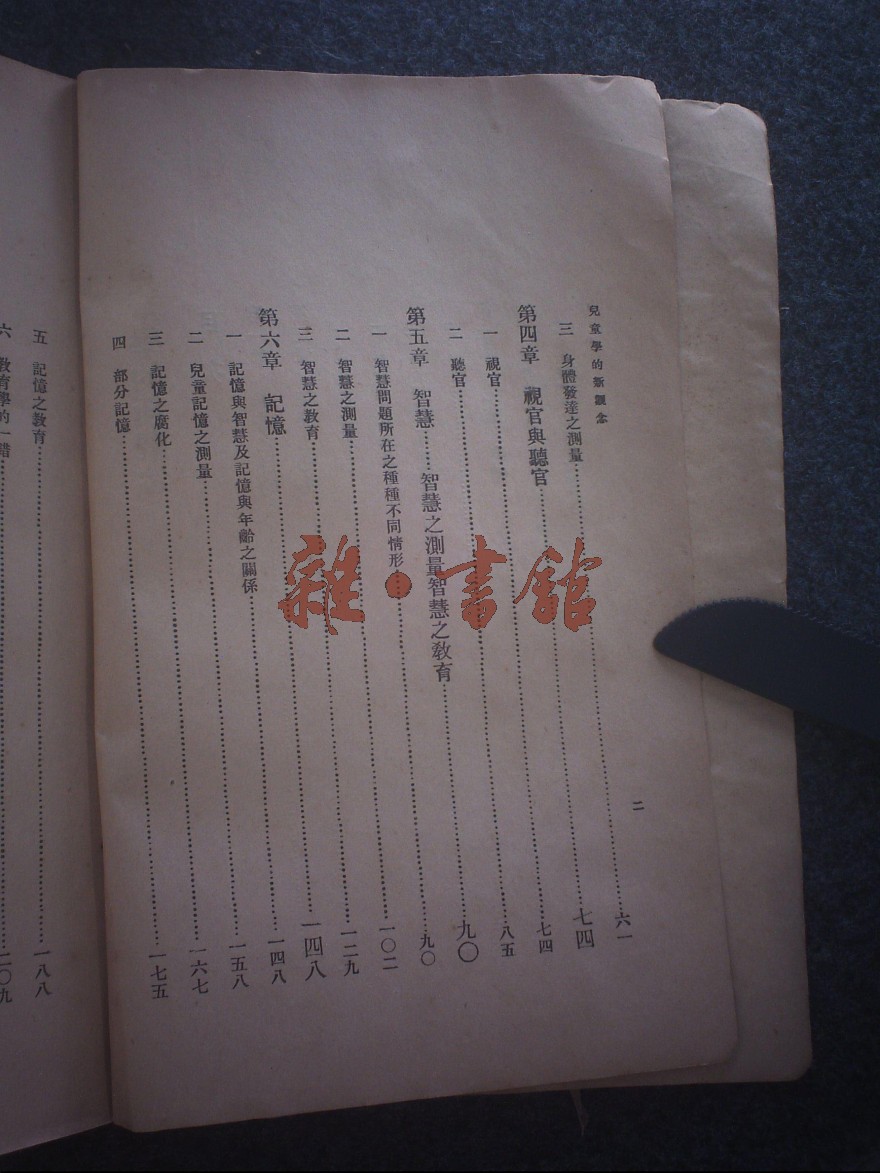 兒童學的新觀念
二
三 身體發達之測量……六一
第四章 視官與聽官……七四
一 視官……七四
二 聽官……八五
第五章 智慧……智慧之測量智慧之教育……九〇
一 智慧問題所在之種種不同情形……九〇
二 智慧之測量……一〇二
三 智慧之教育……一二九
第六章 記憶……一四八
一 記憶與智慧及記憶與年齡之關係……一四八
二 兒童記憶之測量……一五八
三 記憶之腐化……一六七
四 部分記憶……一七五
五 記憶之教育……一八八
六 教育學的一錯……二〇九
雜·書館